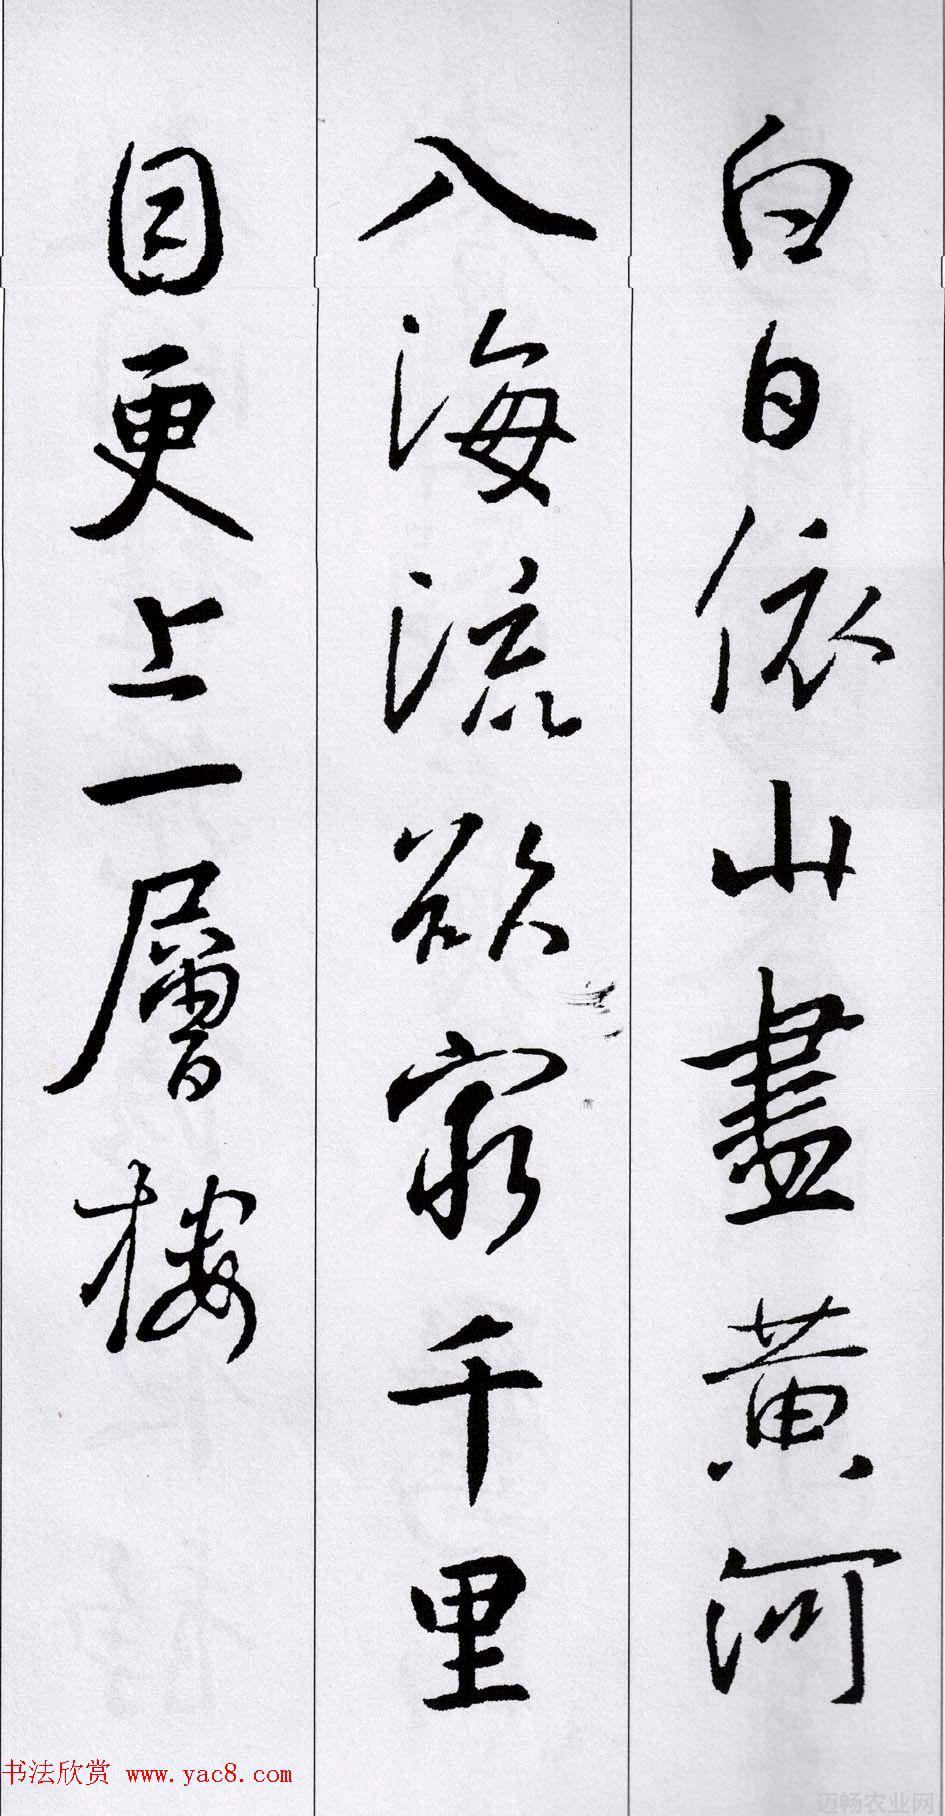 白日依山盡黄河
入海流欲窮千里
目更上一層樓
书法欣赏 www.yac8.com
迈畅农业网